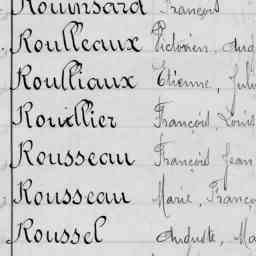 Rouinsard François
Roulleaux Victorien, Aug
Roulliaux Etienne, Juli
Rouillier François, Louis
Rousseau François Jean
Rousseau Marie, Franço
Roussel Auguste, Ma